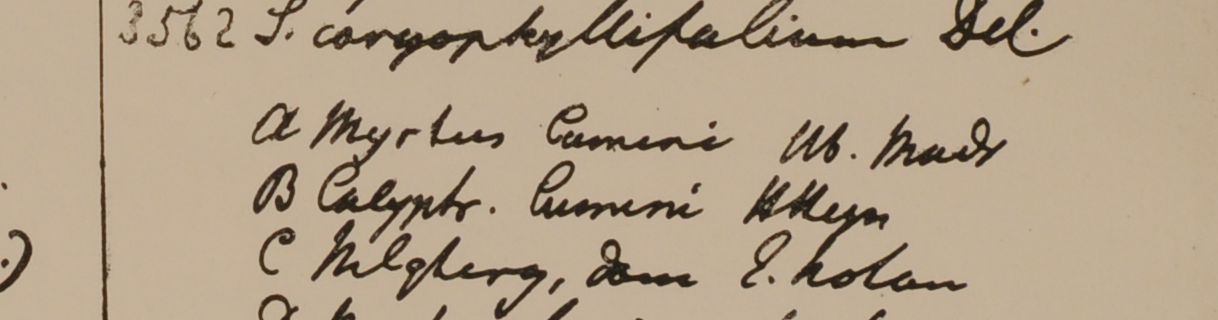 3562 S. caryophyllifolium Del.
A Myrtus Cumini Hb. Madr
B Calyptr. Cumini HHeyn
C Nilgherry, dom E. Nolan